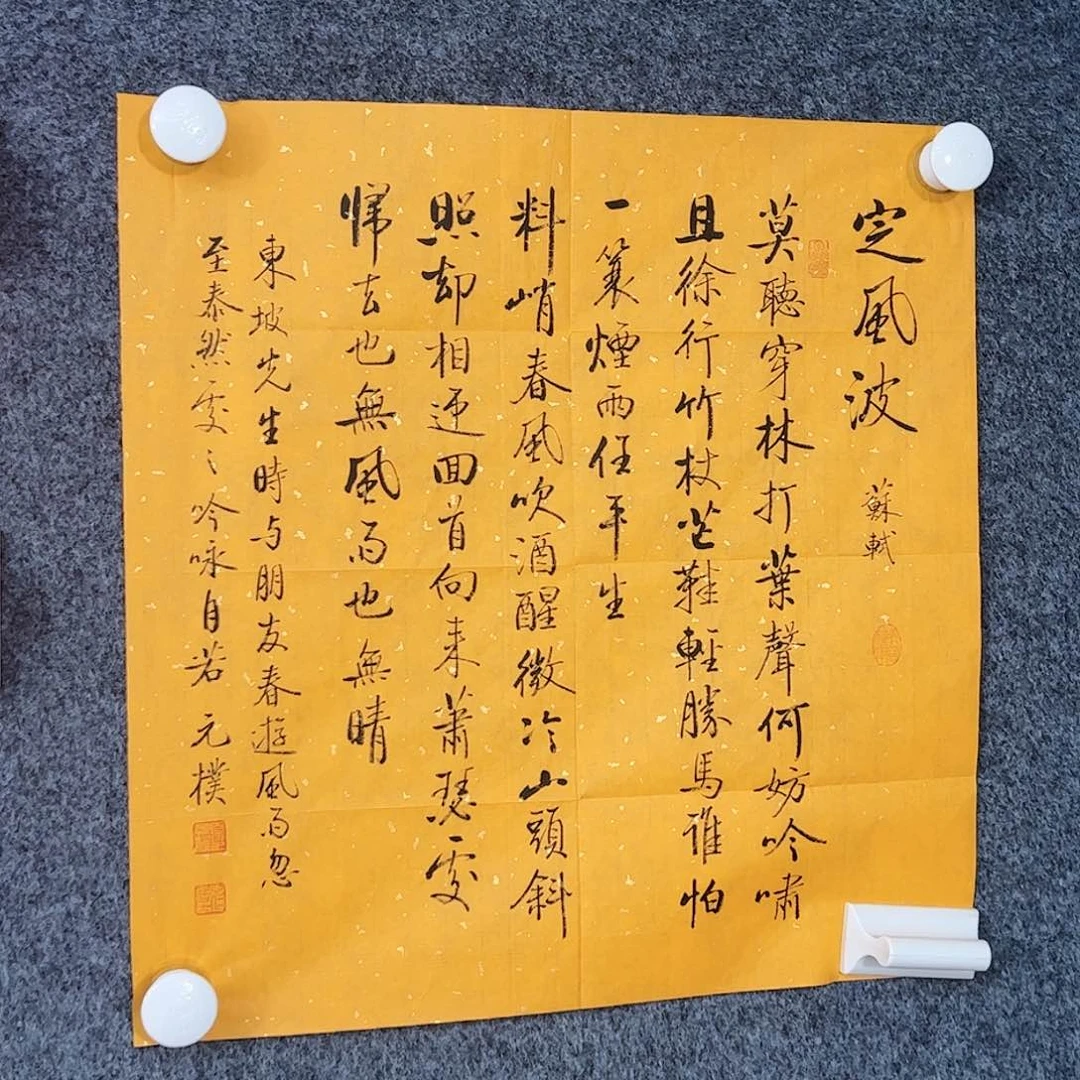 定風波 蘇軾
莫聽穿林打葉聲何妨吟嘯
且徐行竹杖芒鞋輕勝馬誰怕
一蓑煙雨任平生
料峭春風吹酒醒微冷山頭斜
照却相迎回首向来蕭瑟處
歸去也無風雨也無晴
東坡先生時与朋友春遊風雨忽
至泰然處々吟咏自若 元樸